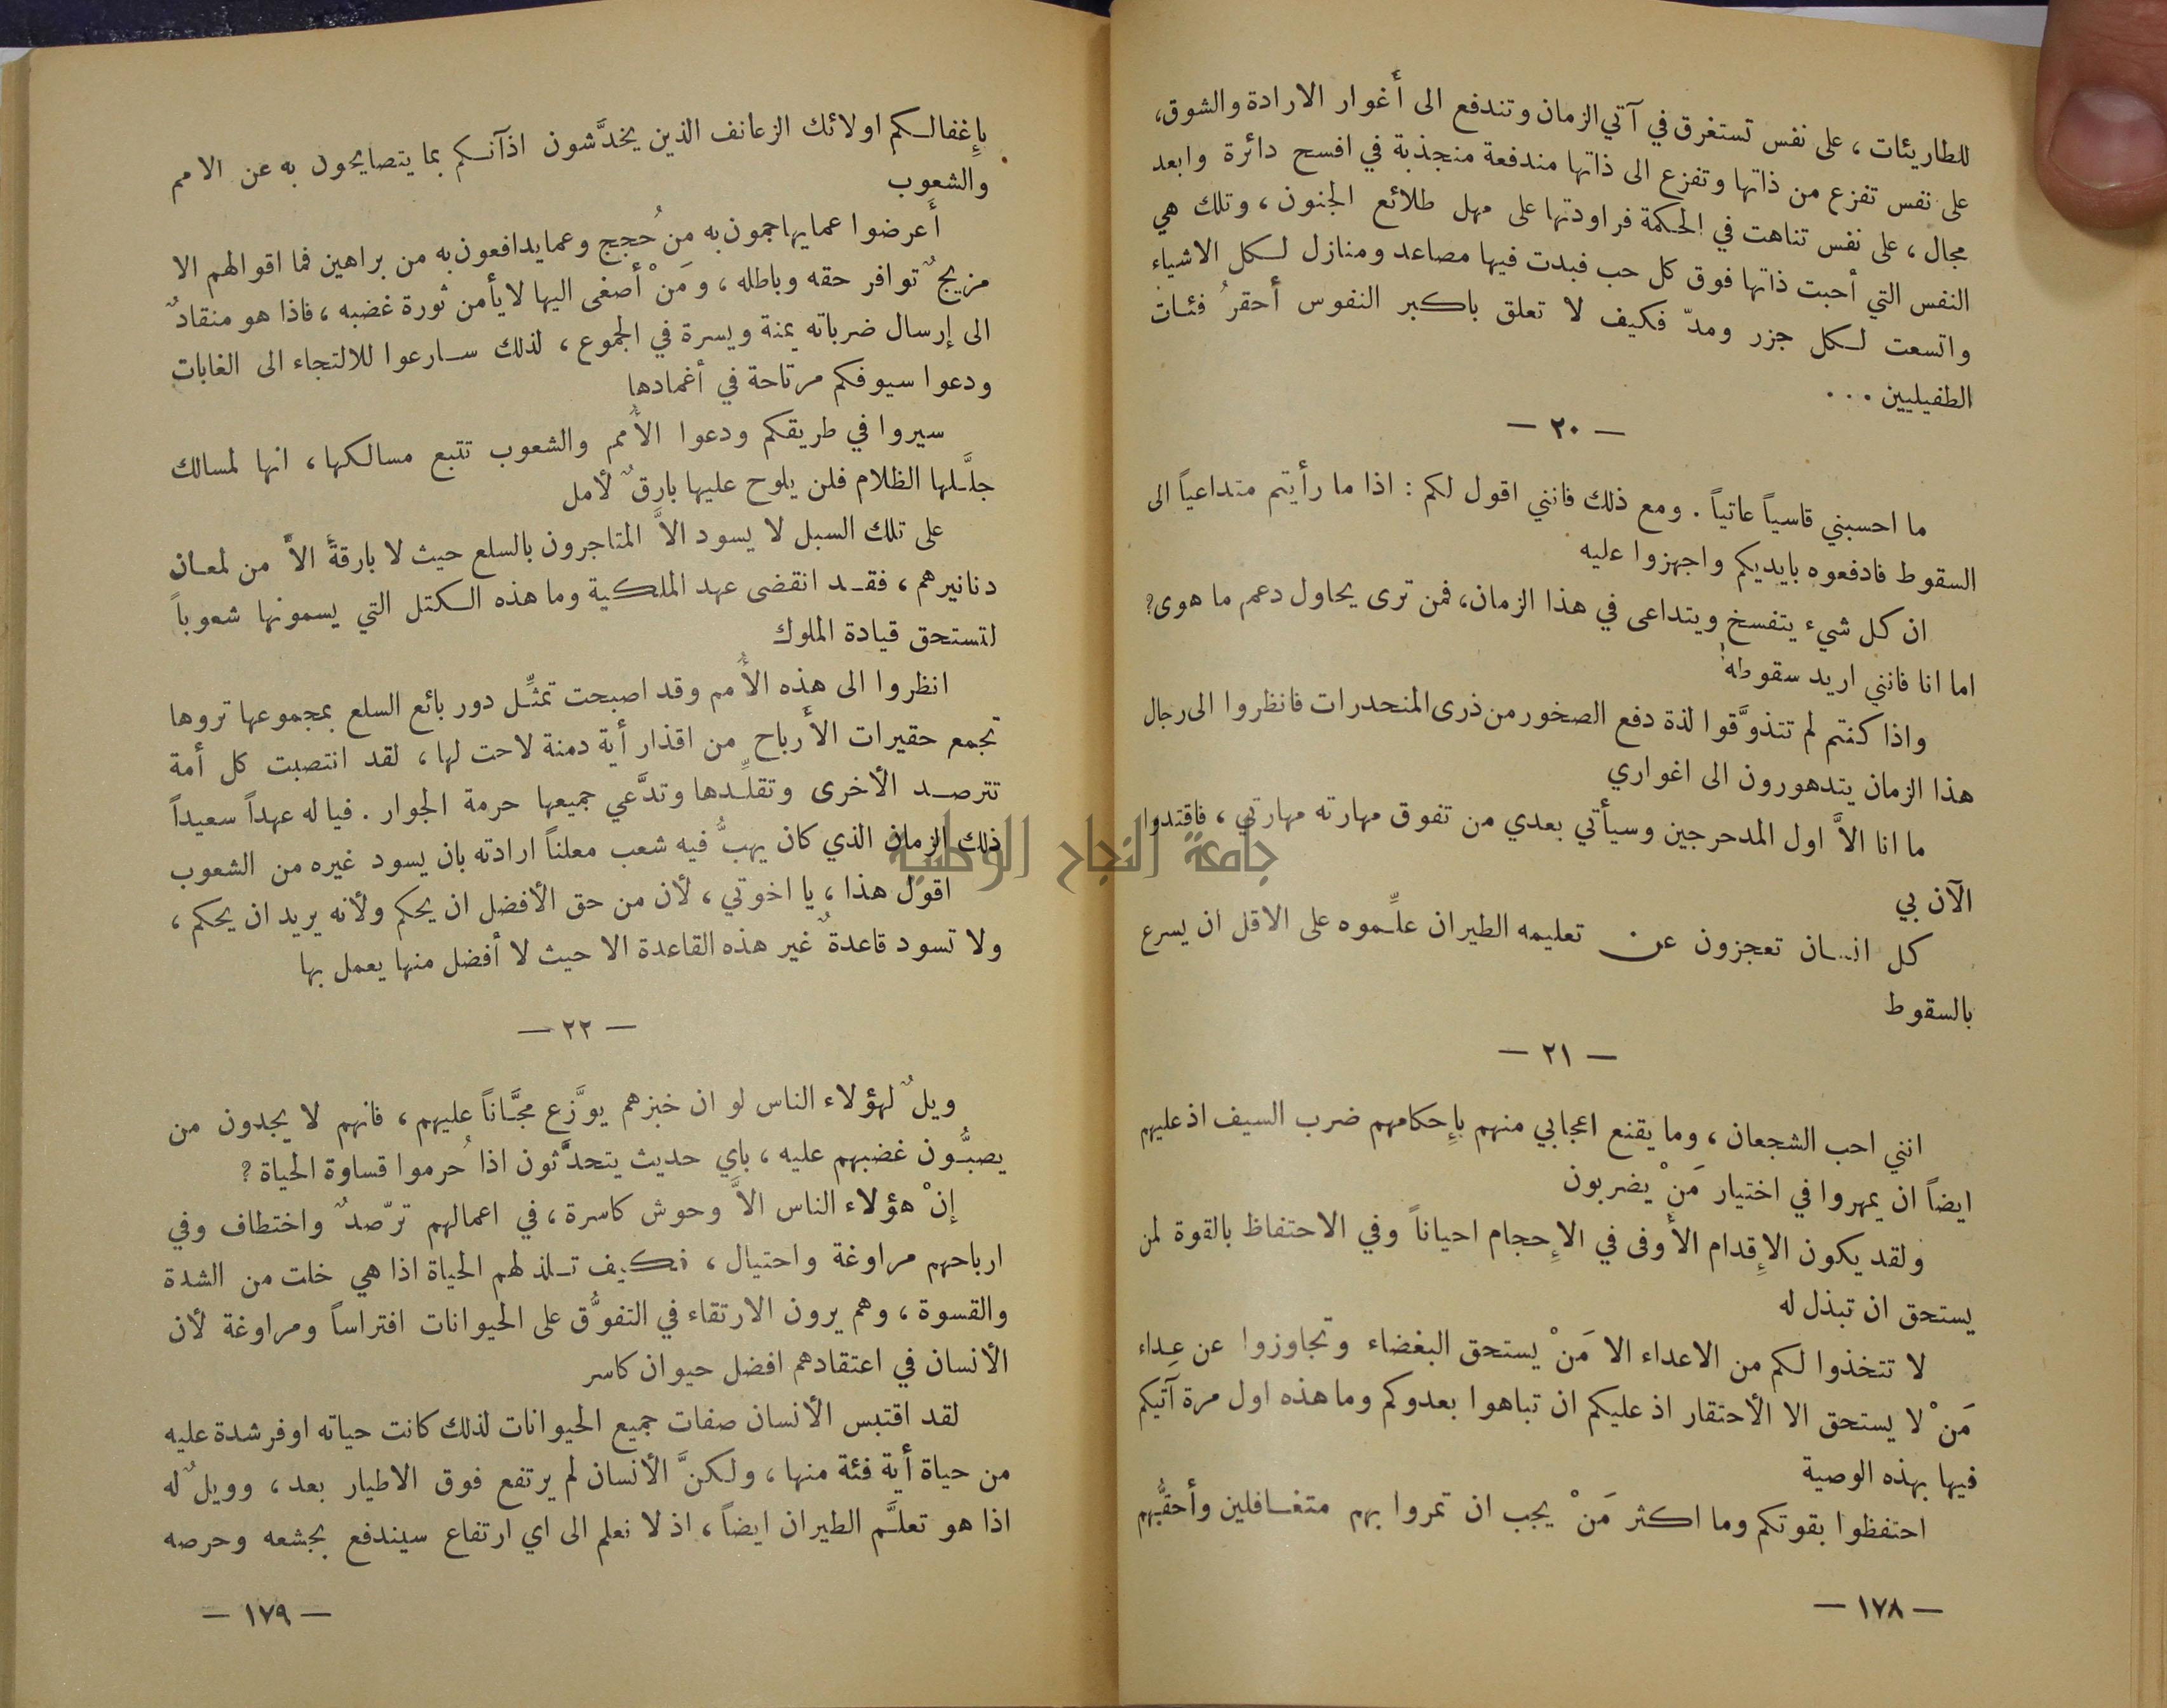 للطاريئات ، على نفس تستغرق في آتي الزمان وتندفع الى أغوار الارادة والشوق،
على نفس تفزع من ذاتها وتفزع الى ذاتها مندفعة منجذبة في افسح دائرة وابعد
مجال ، على نفس تناهت في الحكمة فراودتها على مهل طلائع الجنون ، وتلك هي
النفس التي أحبت ذاتها فوق كل حب فبدت فيها مصاعد ومنازل لكل الاشياء
واتسعت لكل جزر ومدّ فكيف لا تعلق باكبر النفوس أحقرُ فئات
الطفيليين ...
— ٢٠ —
ما احسبني قاسياً عاتياً . ومع ذلك فانني اقول لكم : اذا ما رأيتم متداعياً الى
السقوط فادفعوه بايديكم واجهزوا عليه
ان كل شيء يتفسخ ويتداعى في هذا الزمان، فمن ترى يحاول دعم ما هوى؟
اما انا فانني اريد سقوطه!
واذا كنتم لم تتذوَّقوا لذة دفع الصخور من ذرى المنحدرات فانظروا الى رجال
هذا الزمان يتدهورون الى اغواري
ما انا الاَّ اول المدحرجين وسيأتي بعدي من تفوق مهارته مهارتي ، فاقتدوا
الآن بي
كل انسان تعجزون عن تعليمه الطيران علِّموه على الاقل ان يسرع
بالسقوط
— ٢١ —
انني احب الشجعان ، وما يقنع اعجابي منهم بإِحكامهم ضرب السيف اذ عليهم
ايضاً ان يمهروا في اختيار مَنْ يضربون
ولقد يكون الإِقدام الأَوفى في الإِحجام احياناً وفي الاحتفاظ بالقوة لمن
يستحق ان تبذل له
لا تتخذوا لكم من الاعداء الا مَنْ يستحق البغضاء وتجاوزوا عن عداء
مَنْ لا يستحق الا الأحتقار اذ عليكم ان تباهوا بعدوكم وما هذه اول مرة آتيكم
فيها بهذه الوصية
احتفظوا بقوتكم وما اكثر مَنْ يجب ان تمروا بهم متغافلين وأحقُّهم
— ١٧٨ —
بإِغفالكم اولائك الزعانف الذين يخدَّشون اذآنكم بما يتصايحون به عن الامم
والشعوب
أَعرضوا عما يهاجمون به من حُجج وعما يدافعون به من براهين فما اقوالهم الا
مزيجٌ توافر حقه وباطله ، ومَنْ أصغى اليها لا يأمن ثورة غضبه ، فاذا هو منقادٌ
الى إرسال ضرباته يمنة ويسرة في الجموع ، لذلك سارعوا للالتجاء الى الغابات
ودعوا سيوفكم مرتاحة في أغمادها
سيروا في طريقكم ودعوا الأُمم والشعوب تتبع مسالكها ، انها لمسالك
جلَّلها الظلام فلن يلوح عليها بارقٌ لأمل
على تلك السبل لا يسود الاَّ المتاجرون بالسلع حيث لا بارقةً الاَّ من لمعان
دنانيرهم ، فقد انقضى عهد الملكية وما هذه الكتل التي يسمونها شعوباً
لتستحق قيادة الملوك
انظروا الى هذه الأُمم وقد اصبحت تمثِّل دور بائع السلع بمجموعها تروها
تجمع حقيرات الأَرباح من اقذار أية دمنة لاحت لها ، لقد انتصبت كل أمة
تترصد الأخرى وتقلِّدها وتدَّعي جميعها حرمة الجوار . فيا له عهداً سعيداً
ذلك الزمان الذي كان يهبُّ فيه شعب معلناً ارادته بان يسود غيره من الشعوب
اقول هذا ، يا اخوتي ، لأن من حق الأفضل ان يحكم ولأنه يريد ان يحكم ،
ولا تسود قاعدةٌ غير هذه القاعدة الا حيث لا أفضل منها يعمل بها
— ٢٢ —
ويلٌ لهؤلاء الناس لو ان خبزهم يوَّزع مجَّاناً عليهم ، فانهم لا يجدون من
يصبُّون غضبهم عليه ، باي حديث يتحدَّثون اذا حُرموا قساوة الحياة ؟
إنْ هؤلاء الناس الاَّ وحوش كاسرة ، في اعمالهم ترّصدٌ واختطاف وفي
ارباحهم مراوغة واحتيال ، فكيف تلذ لهم الحياة اذا هي خلت من الشدة
والقسوة ، وهم يرون الارتقاء في التفوُّق على الحيوانات افتراساً ومراوغة لأن
الأنسان في اعتقادهم افضل حيوان كاسر
لقد اقتبس الأنسان صفات جميع الحيوانات لذلك كانت حياته اوفر شدة عليه
من حياة أية فئة منها ، ولكنَّ الأنسان لم يرتفع فوق الاطيار بعد ، وويلٌ له
اذا هو تعلَّم الطيران ايضاً ، اذ لا نعلم الى اي ارتفاع سيندفع بجشعه وحرصه
— ١٧٩ —
جامعة النجاح الوطنية